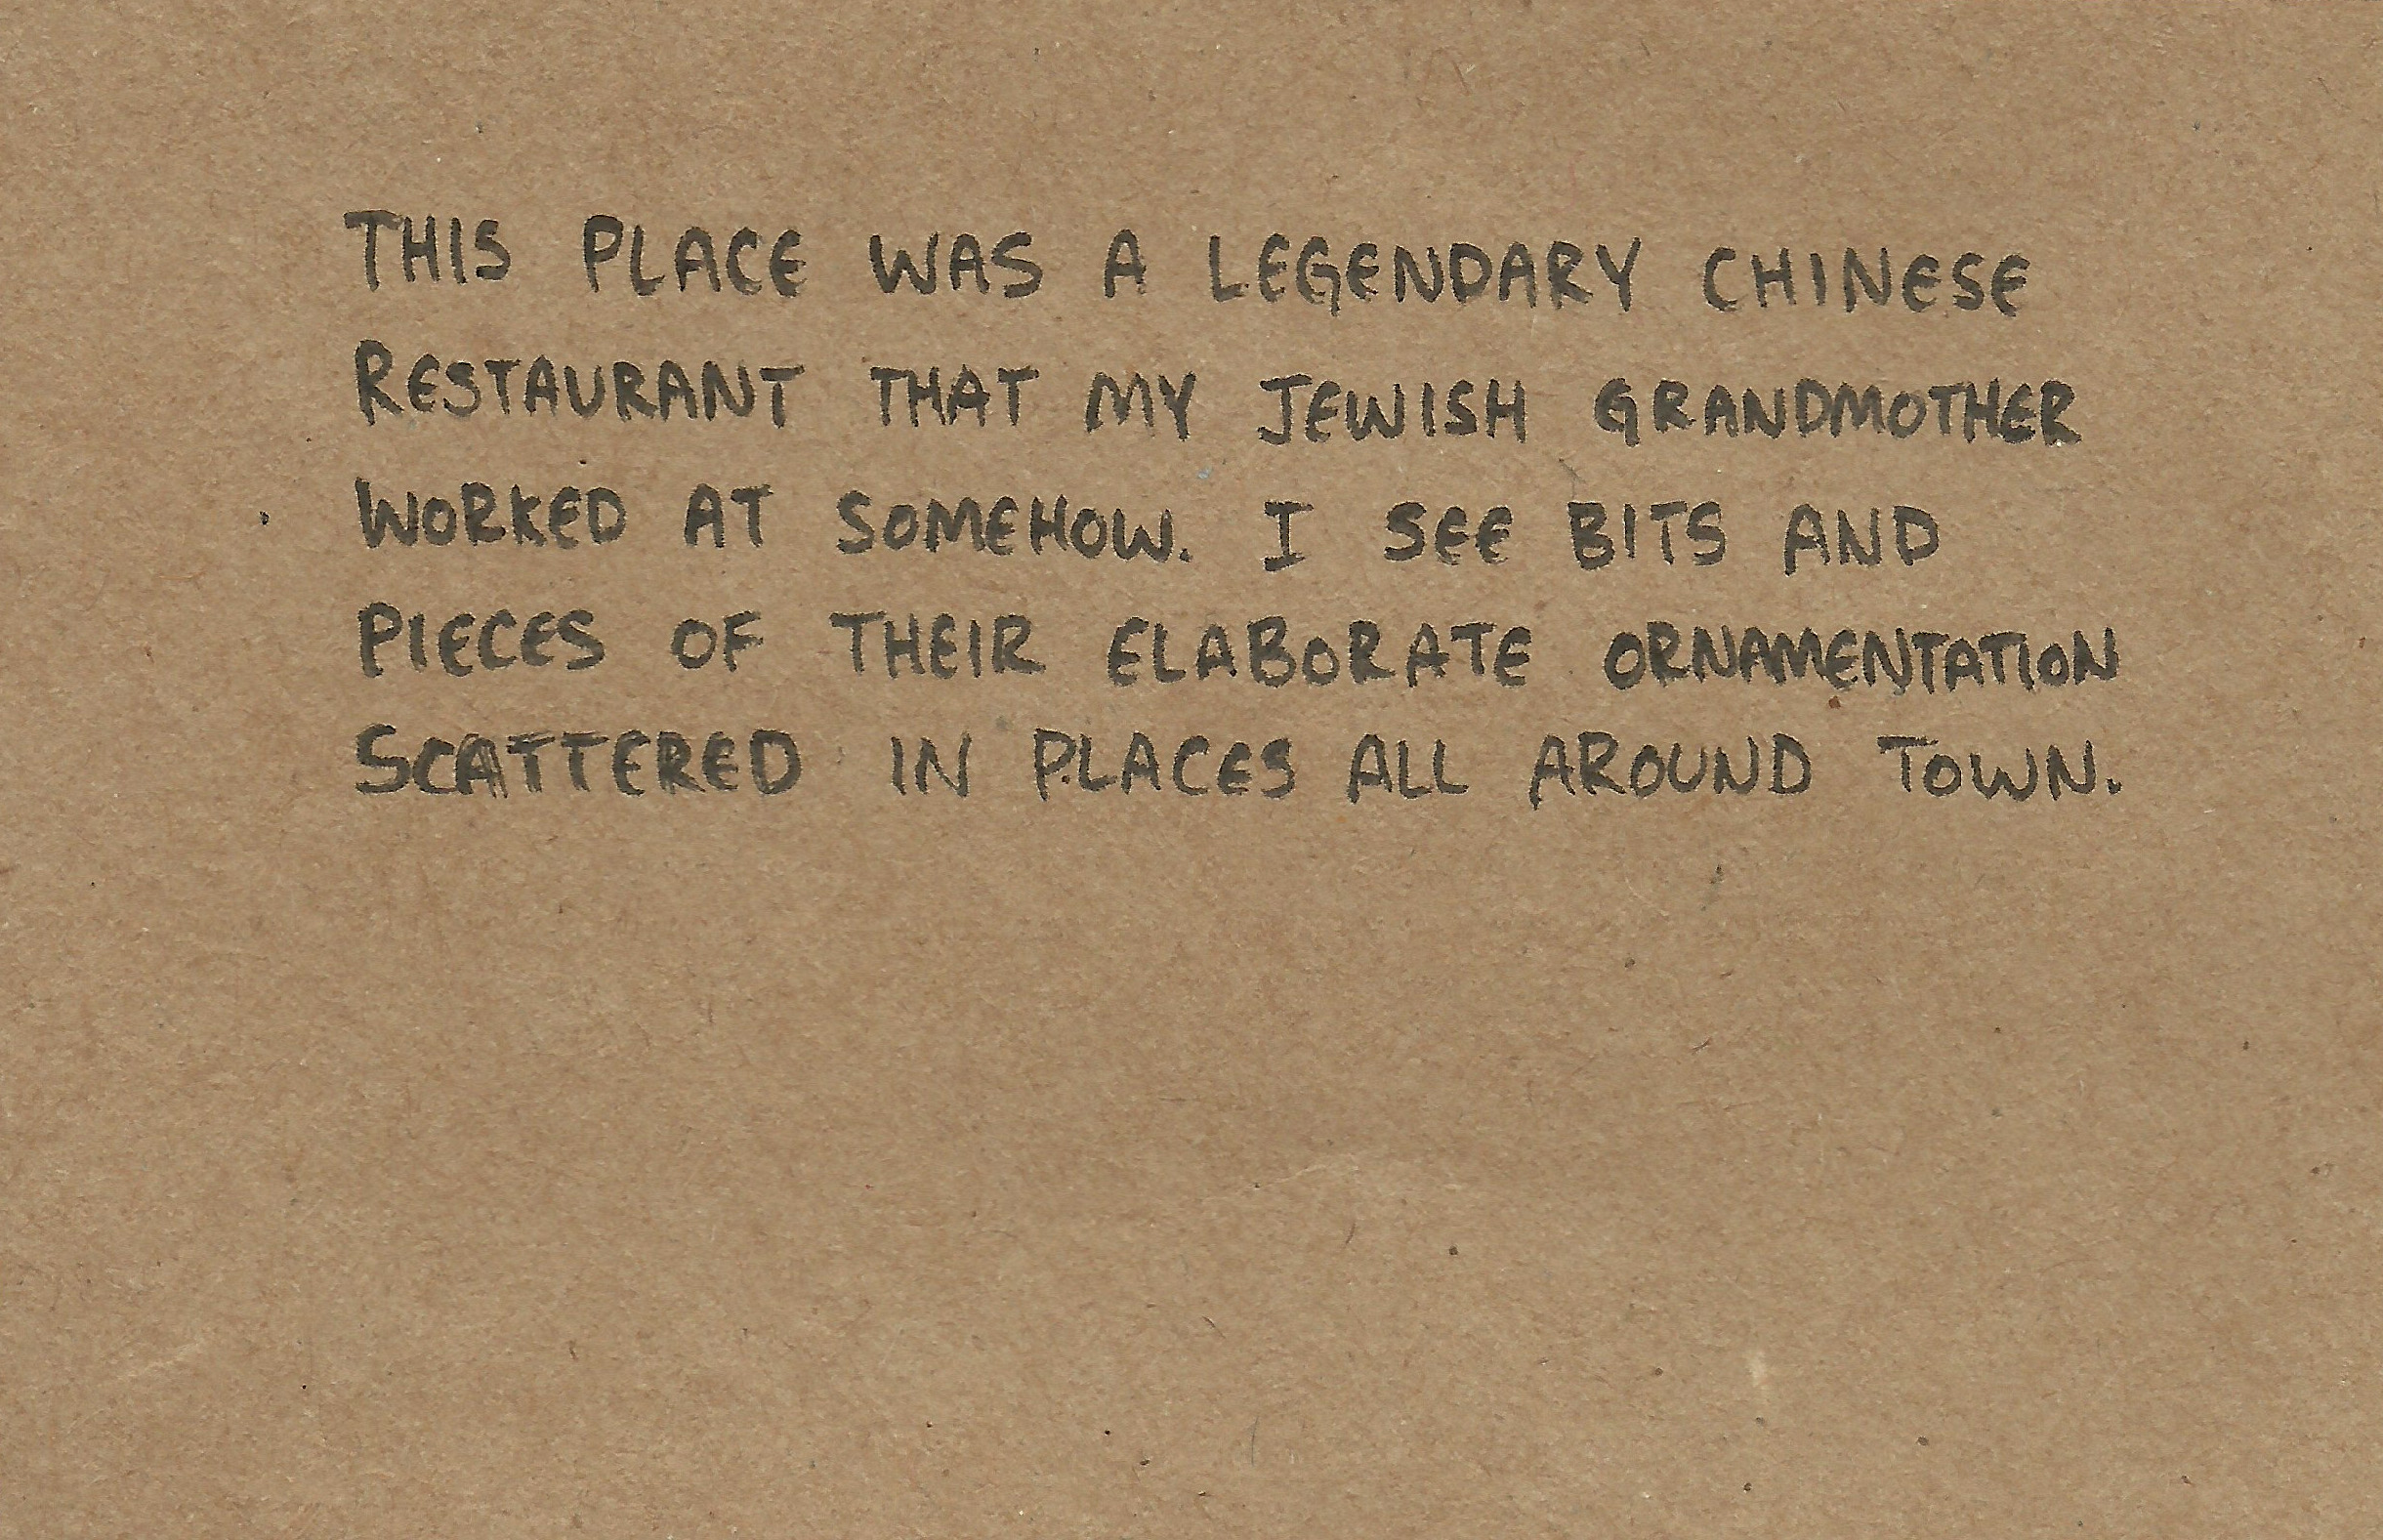 THIS PLACE WAS A LEGENDARY CHINESE
RESTAURANT THAT MY JEWISH GRANDMOTHER
WORKED AT SOMEHOW. I SEE BITS AND
PIECES OF THEIR ELABORATE ORNAMENTATION
SCATTERED IN PLACES ALL AROUND TOWN.